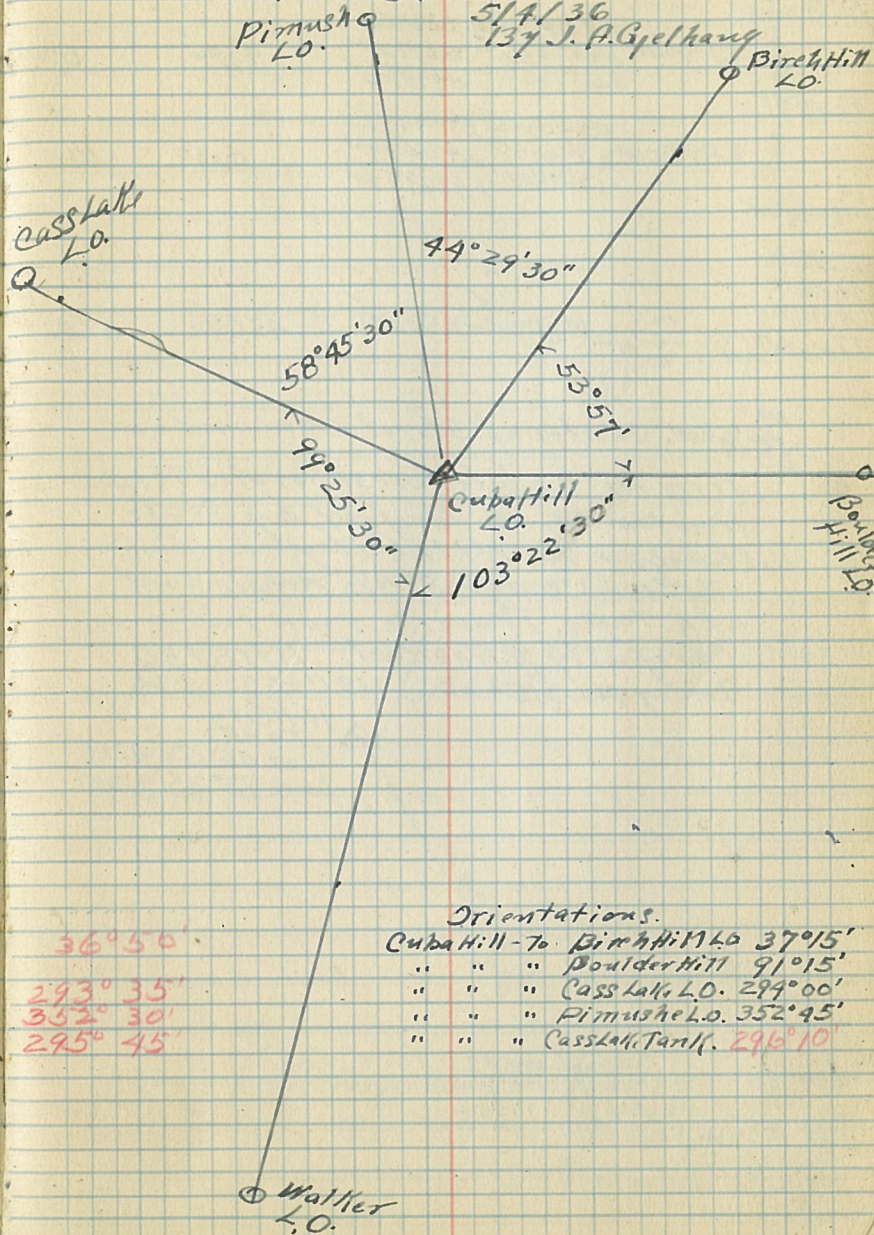 5/4/36
By J. A. Gjelhaug
Pimush
L.O.
Birch Hill
L.O.
Cass Lake
L.O.
44°29'30"
58°45'30"
53°57'
99°25'30"
Cuba Hill
L.O.
103°22'30"
Boulder
Hill L.O.
Orientations.
Cuba Hill - To Birch Hill L.O 37°15'
" " " Boulder Hill 91°15'
" " " Cass Lak. L.O. 294°00'
" " " Pimushe L.O. 352°45'
" " " Cass Lak. Tank. 296°10'
36°50'
293° 35'
352° 30'
295° 45'
Walker
L.O.